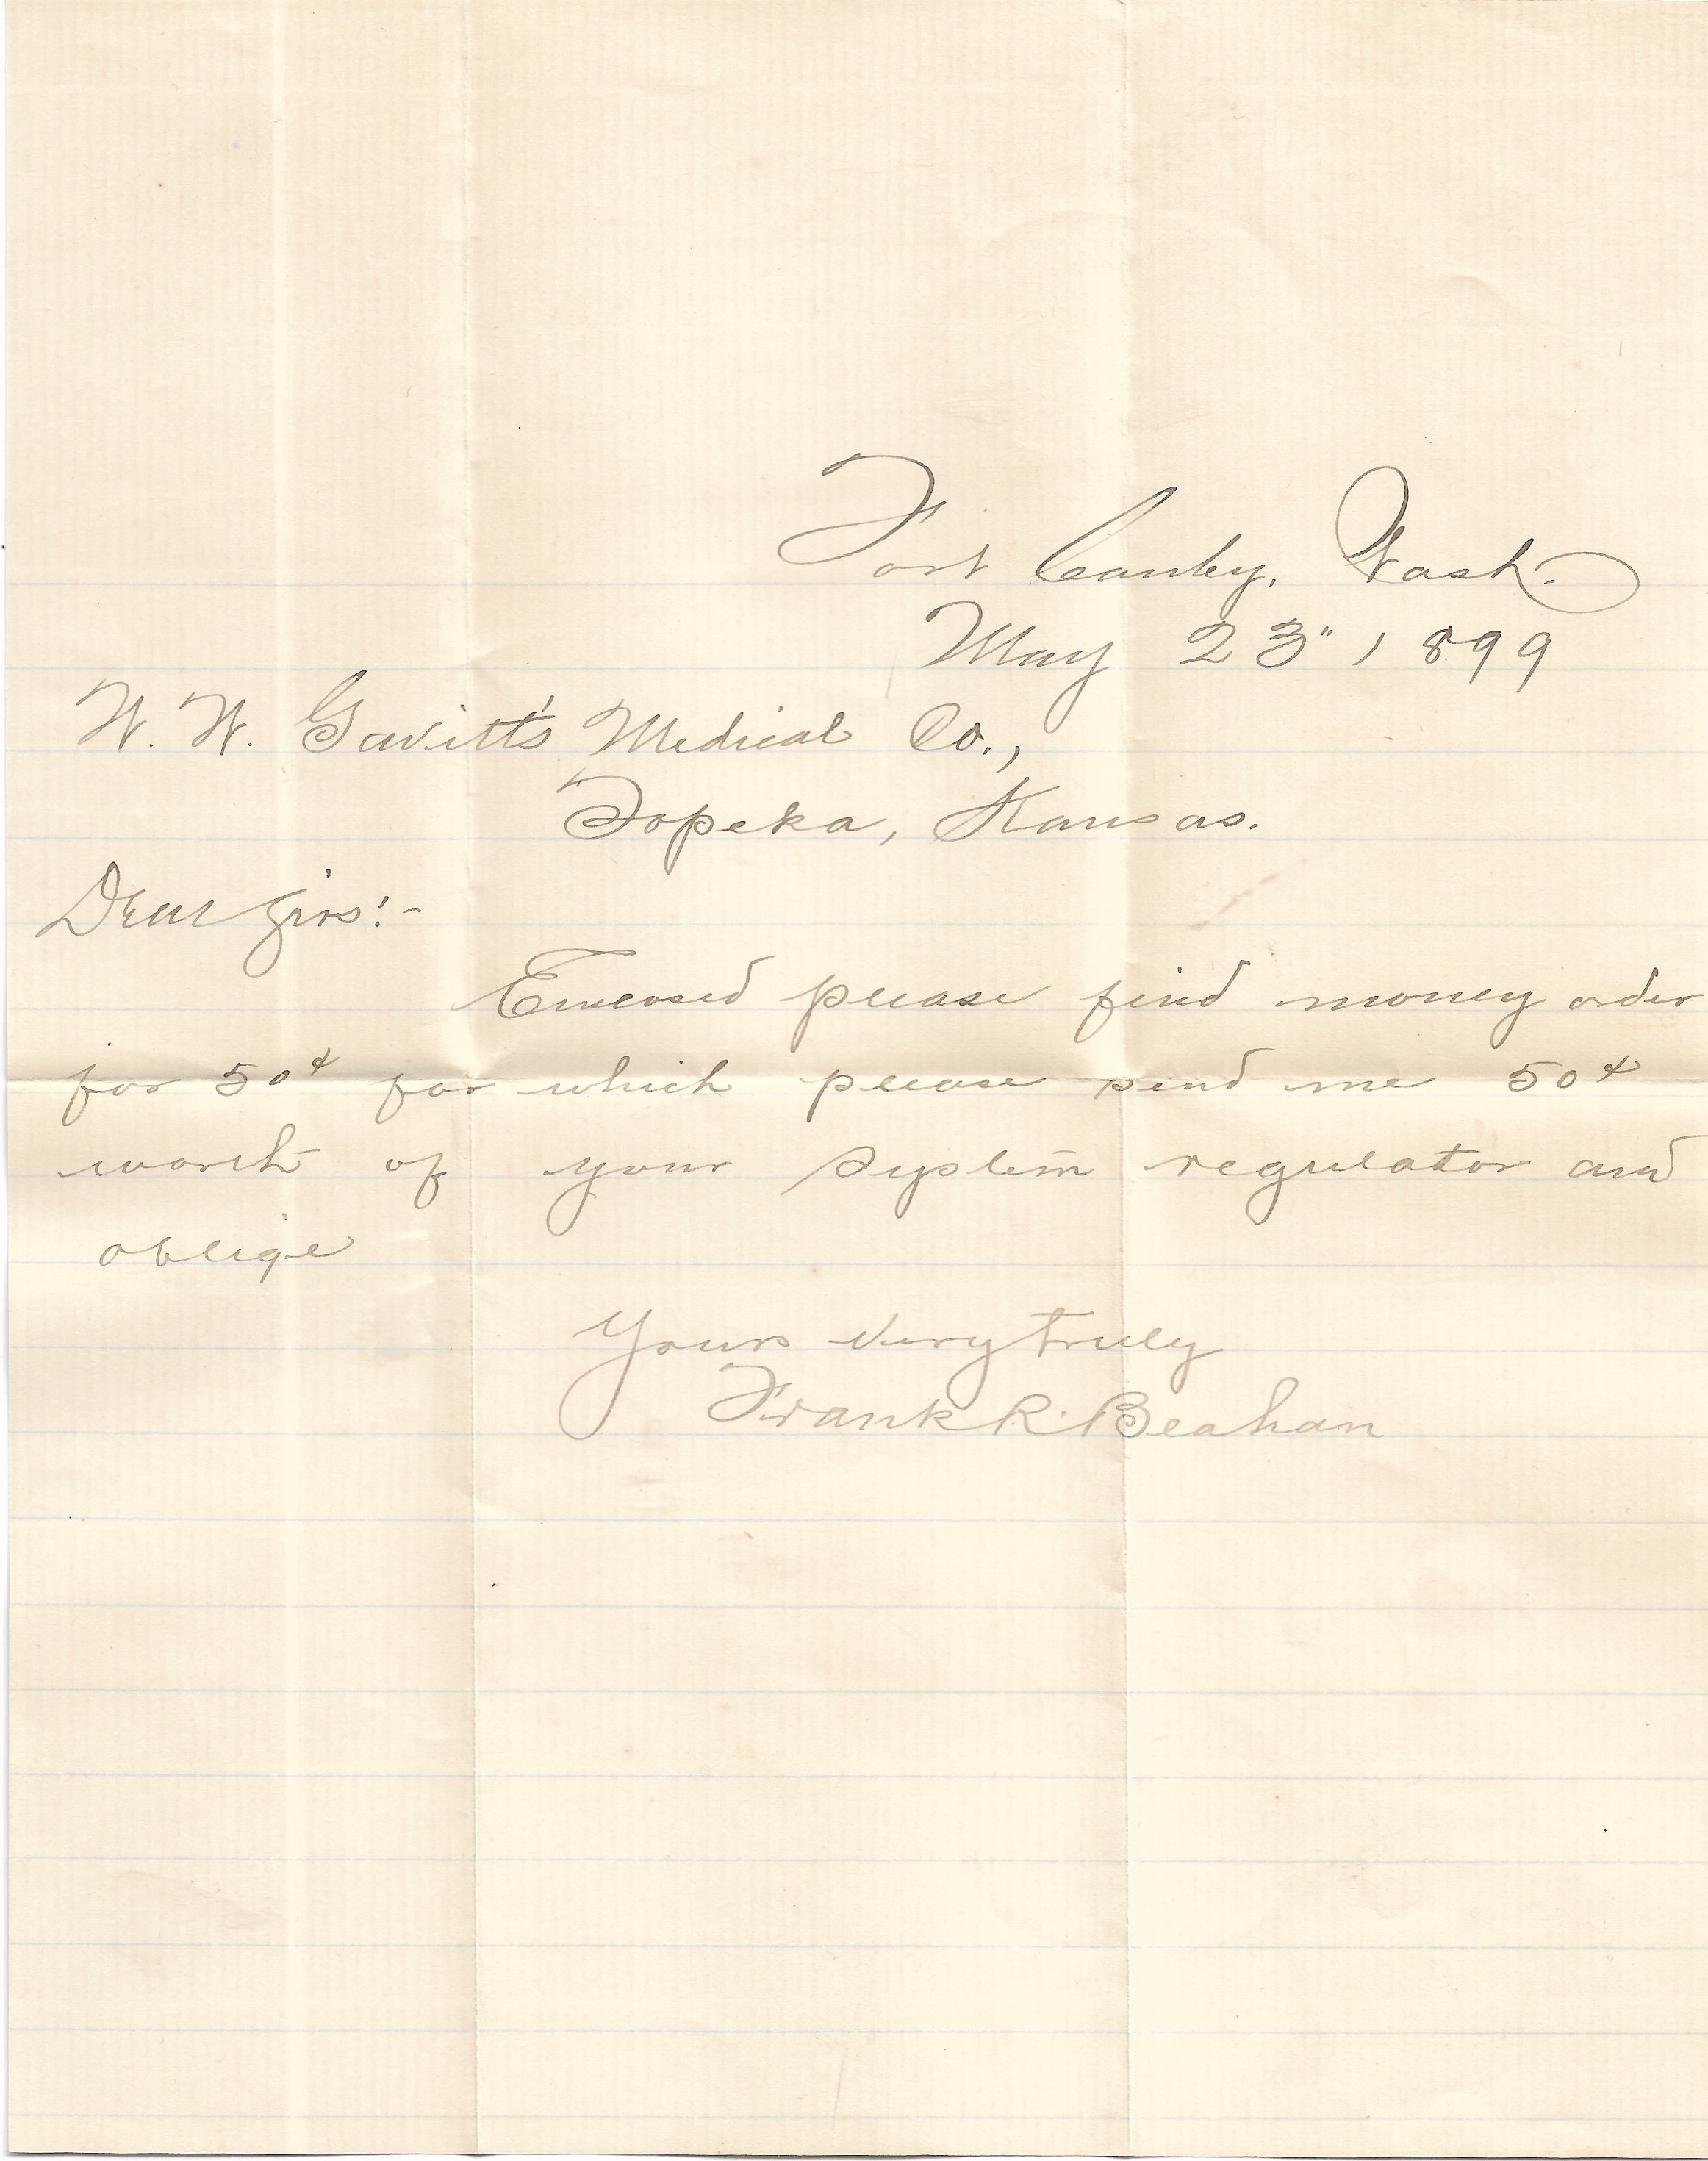 Fort Canby, Wash.
May 23" 1899
W. W. Gavitt's Medical Co.,
Topeka, Kansas.
Dear Sirs:-
Enclosed please find money order
for 50¢ for which please send me 50¢
worth of your system regulator and
oblige
Yours very truly
Frank R. Beahan